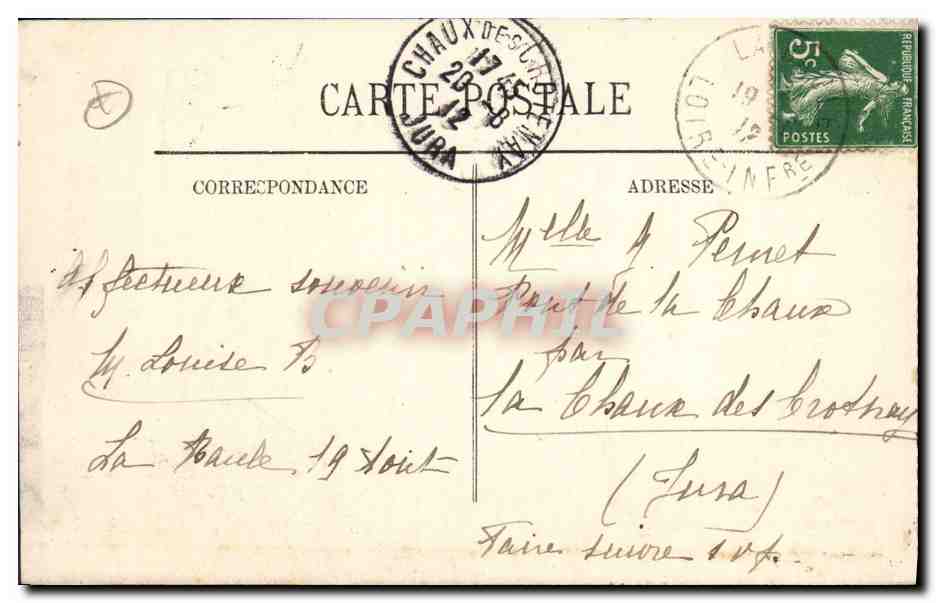 CARTE POSTALE
CHAUX DES CROTENAY
17 45
20 - 8
12
JURA
LA
19
12
LOIRE INFRE
5c
REPUBLIQUE FRANÇAISE
POSTES
CORRESPONDANCE
Affectueux souvenir
M. Louise B.
La Baule 19 Aout
ADRESSE
Melle M. Pernet
Pont de la Chaux
par
la Chaux des Crotnay
(Jura)
Faire suivre s.v.p.
CPAPHIL